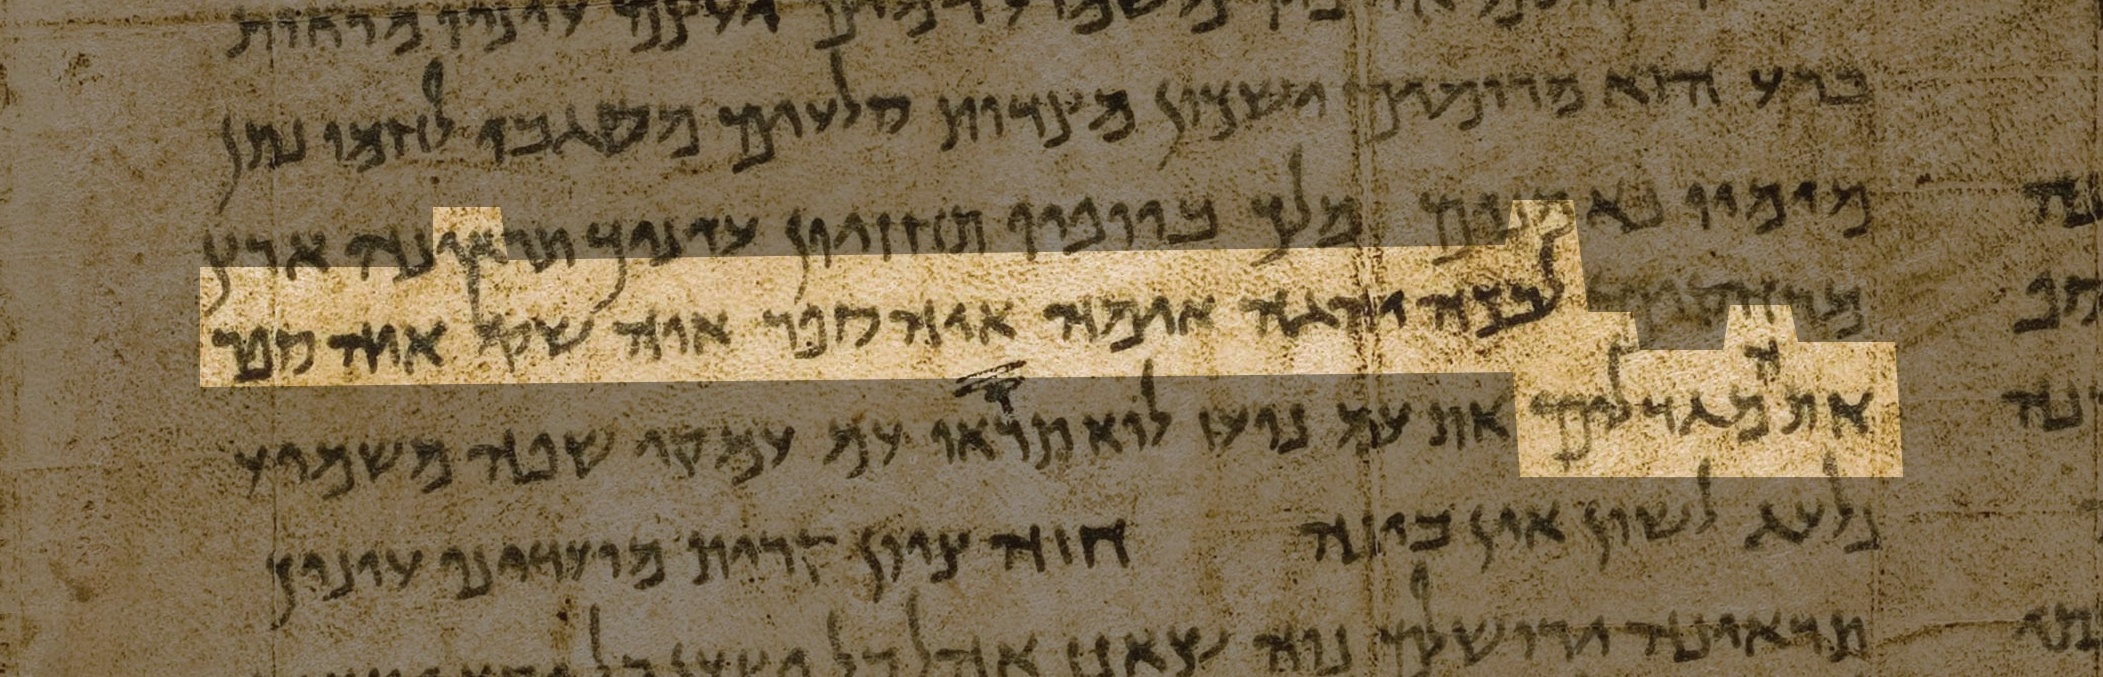 משמוע דמים ועצם עיניו מראות
ברע הוא מרומים ישכון מצדות סלעים משגבו לחמו נתן
מימיו נאמנים מלך ביופיו תחזיון עיניך תראינה ארץ
מרחקים לבכה יהגה אימה איה ספר איה שקל איה ספר
את המגדלים את עם נועז לוא תראה עם עמקי שפה משמוע
נלעג לשון אין בינה חזה ציון קרית מועדינו עיניך
תראינה ירושלים נוה שאנן אוהל בל